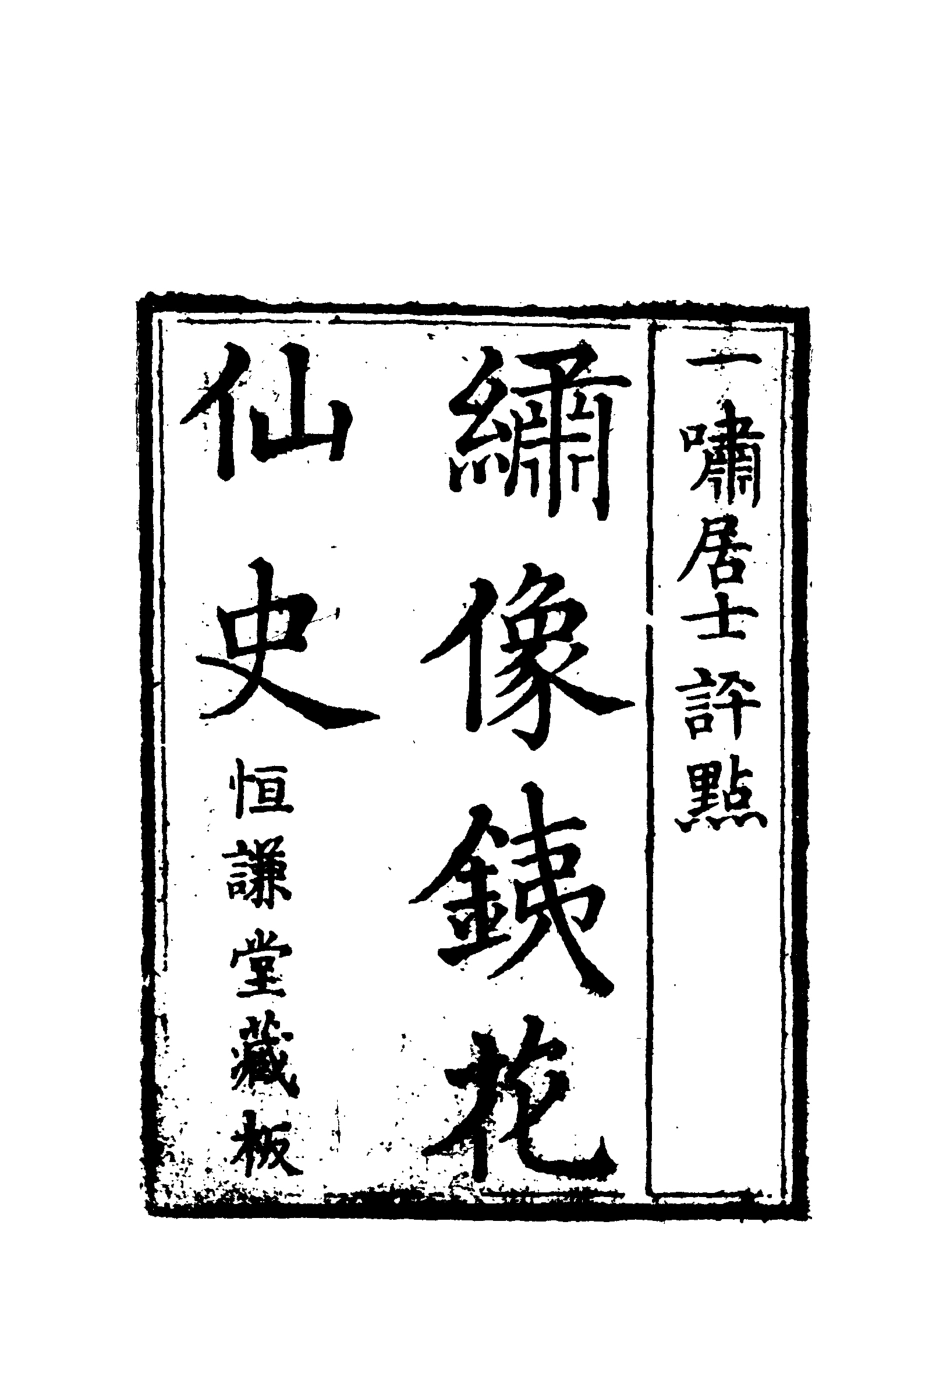 一嘯居士評點
繡像銕花
仙史
恒謙堂藏板